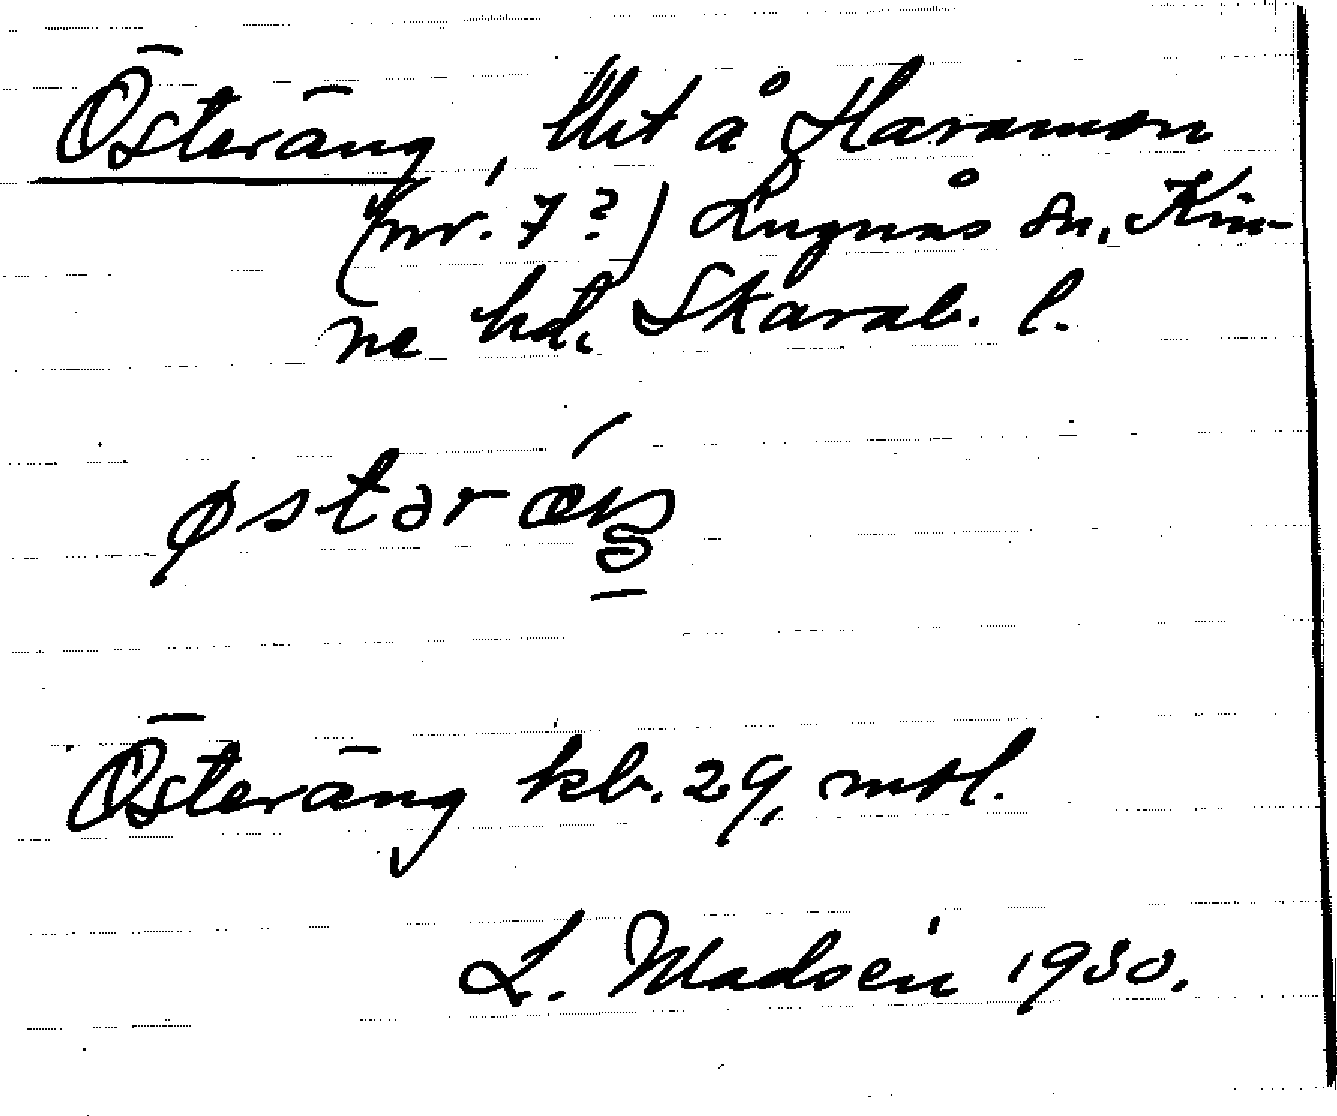 Österäng, Ut å Haramon
(nr. 7?) Lugnås sn, Kin-
ne hd, Skarab. l.
østəræŋ
Österäng kb. 29, mtl.
L. Madsén 1930.